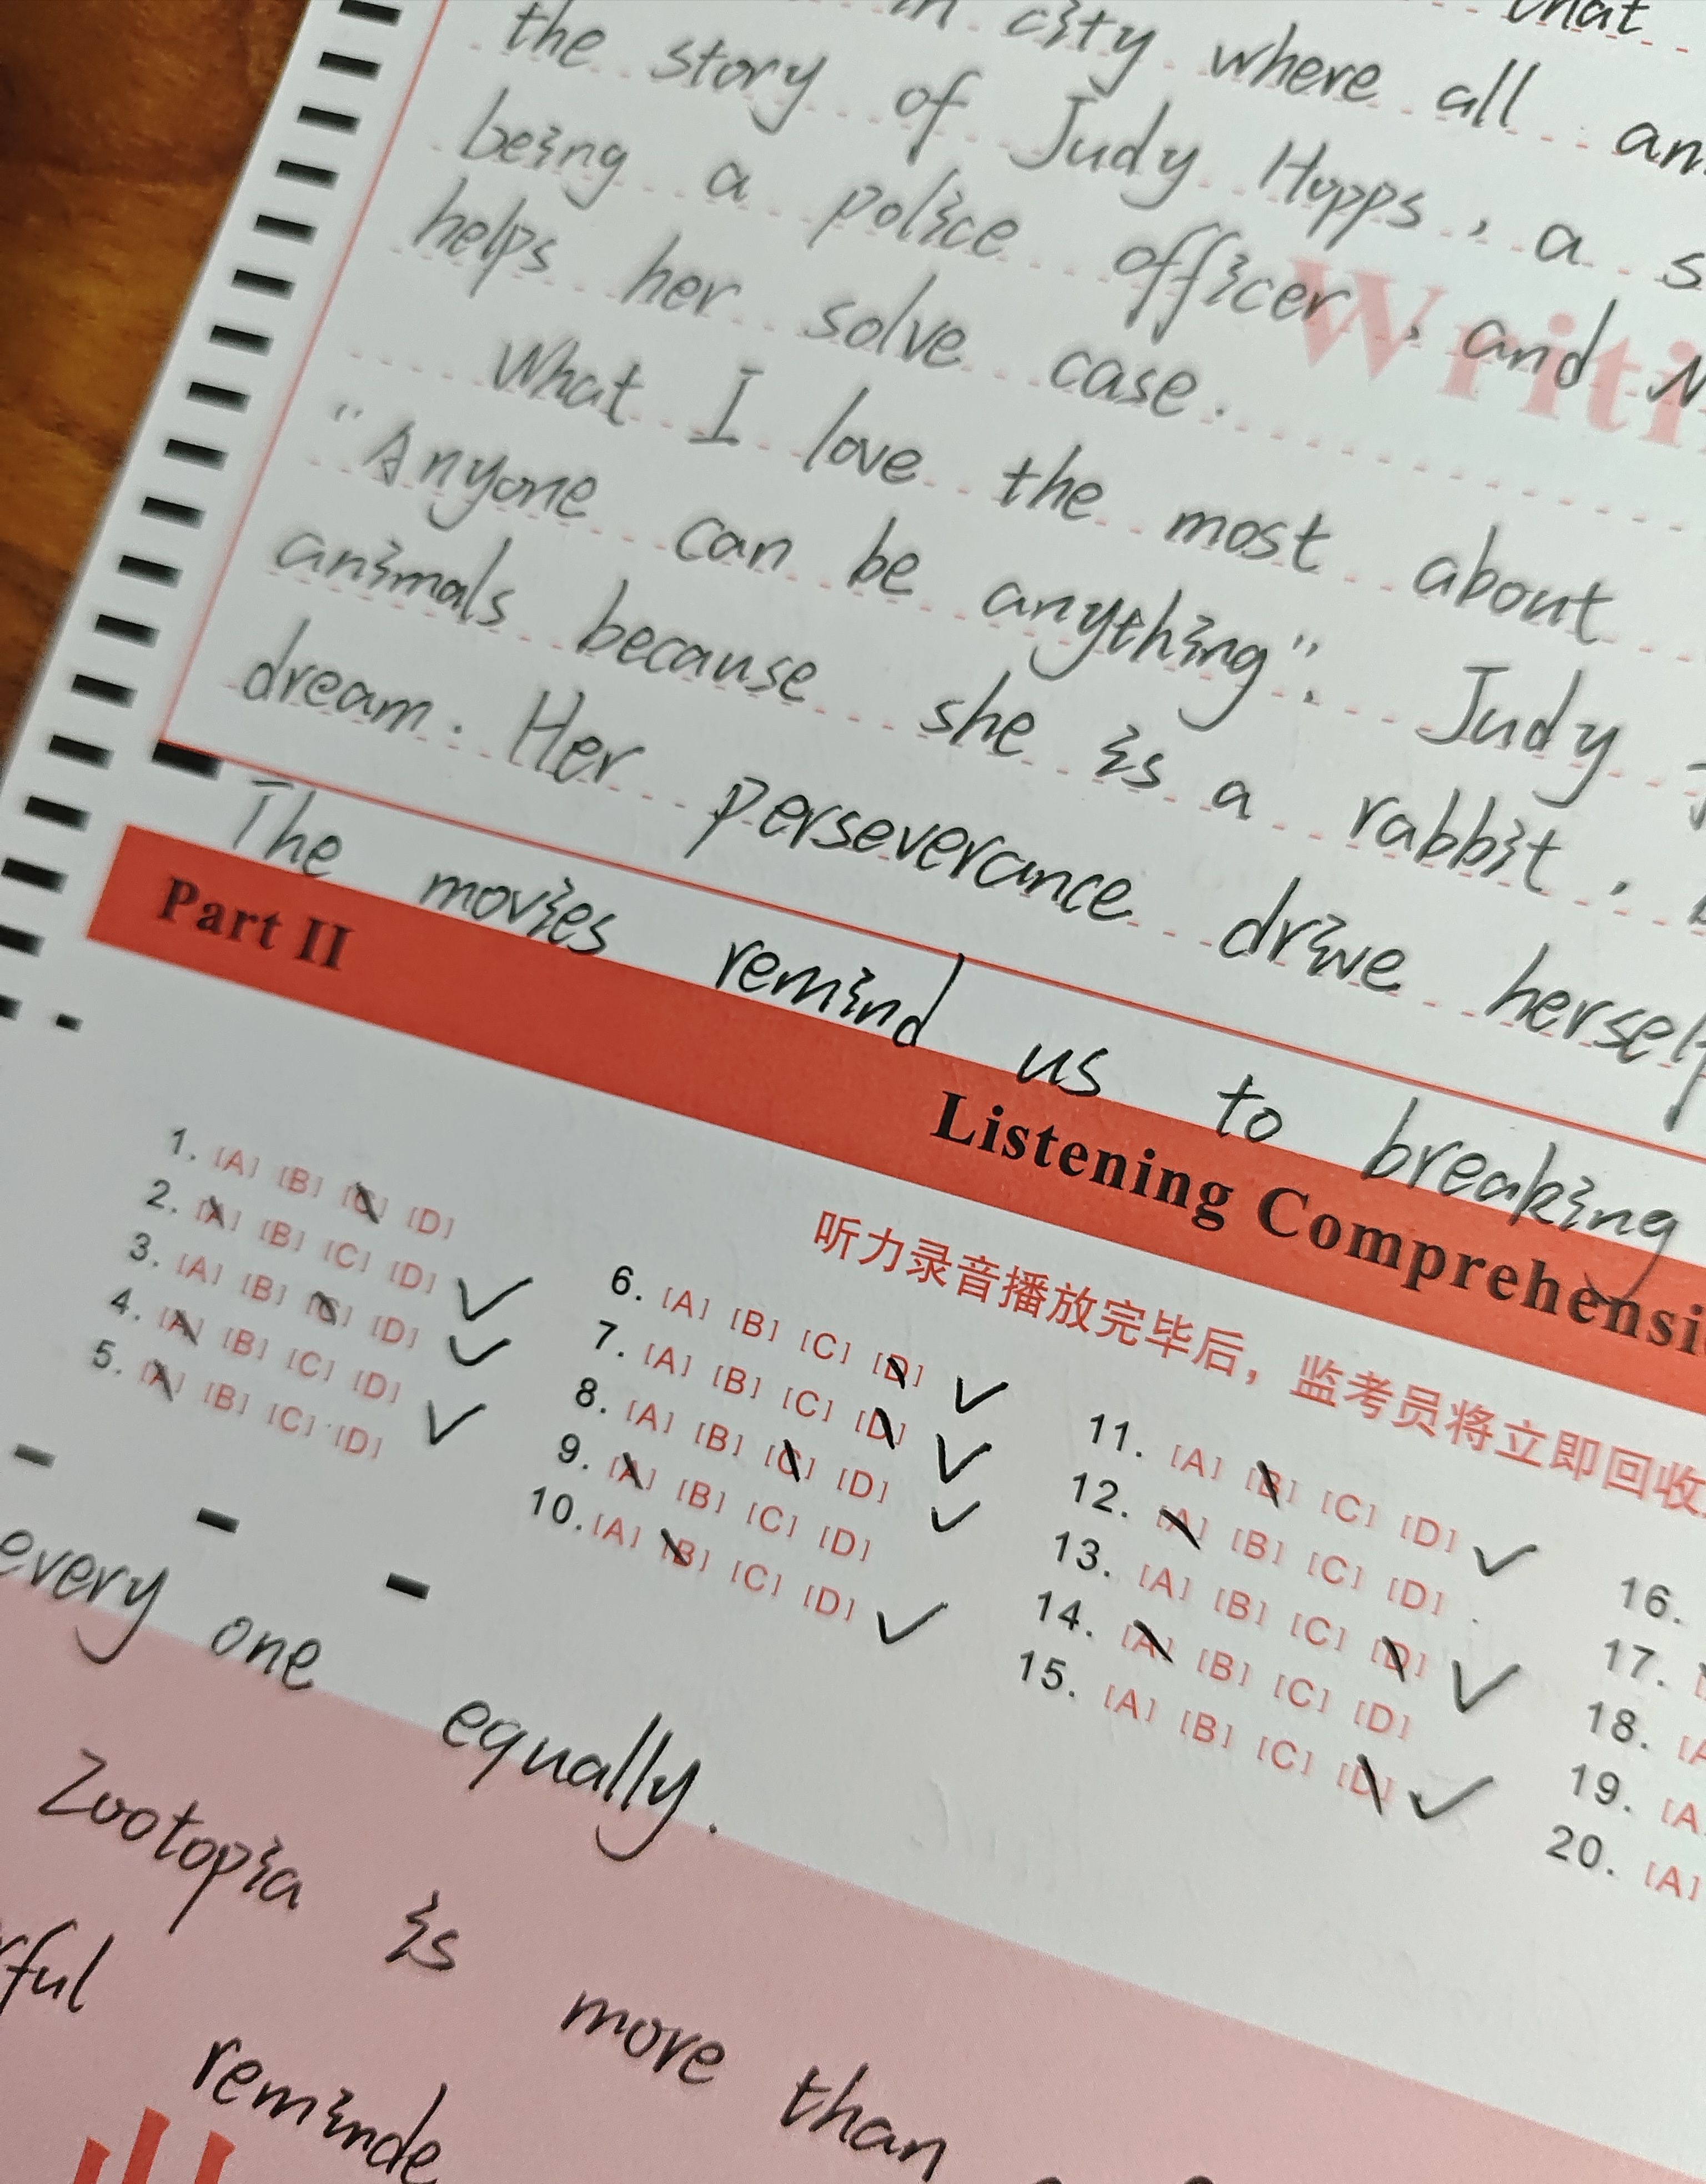 in city where all
the story of Judy Hopps, a
being a police officer, and
helps her solve case.
Writi
What I love the most about
"Anyone can be anything". Judy
animals because she is a rabbit,
dream. Her perseverance drive herself
The movies remind us to breaking
Part II Listening Comprehensi
听力录音播放完毕后，监考员将立即回收
1. [A] [B] [C] [D]
2. [A] [B] [C] [D]
3. [A] [B] [C] [D]
4. [A] [B] [C] [D]
5. [A] [B] [C] [D]
6. [A] [B] [C] [D]
7. [A] [B] [C] [D]
8. [A] [B] [C] [D]
9. [A] [B] [C] [D]
10. [A] [B] [C] [D]
11. [A] [B] [C] [D]
12. [A] [B] [C] [D]
13. [A] [B] [C] [D]
14. [A] [B] [C] [D]
15. [A] [B] [C] [D]
16.
17.
18. [A
19. [A
20. [A]
every one equally.
Zootopia is more than
rful reminde